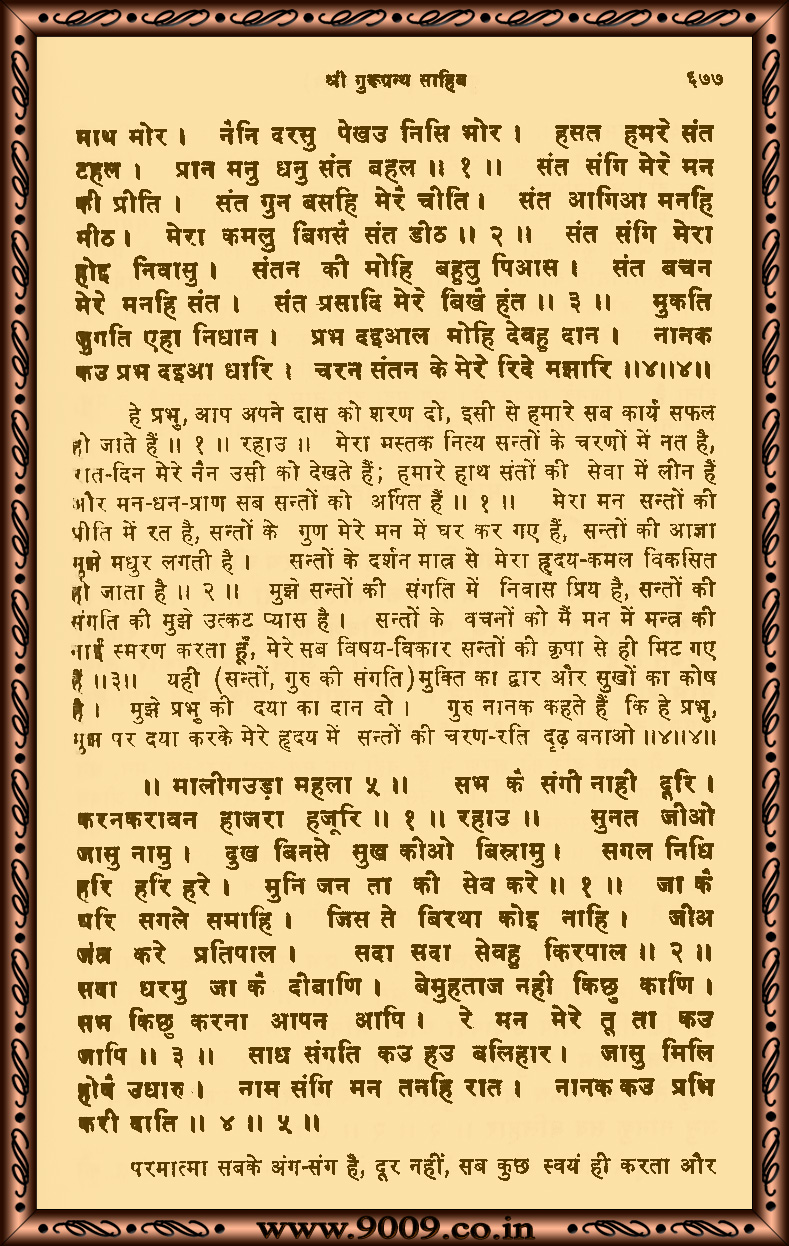 श्री गुरूग्रन्थ साहिब ६७७
माथ मोर । नैनि दरसु पेखउ निसि भोर । हसत हमरे संत
टहल । प्रान मनु धनु संत बहल ॥ १ ॥ संत संगि मेरे मन
की प्रीति । संत गुन बसहि मेरै चीति । संत आगिआ मनहि
मीठ । मेरा कमलु बिगसै संत डीठ ॥ २ ॥ संत संगि मेरा
होइ निवासु । संतन की मोहि बहुतु पिआस । संत बचन
मेरे मनहि संत । संत प्रसादि मेरे बिखै हंत ॥ ३ ॥ मुकति
जुगति एहा निधान । प्रभ दइआल मोहि देवहु दान । नानक
कउ प्रभ दइआ धारि । चरन संतन के मेरे रिदे मझारि ॥४॥४॥
हे प्रभु, आप अपने दास को शरण दो, इसी से हमारे सब कार्य सफल
हो जाते हैं ॥ १ ॥ रहाउ ॥ मेरा मस्तक नित्य सन्तों के चरणों में नत है,
रात-दिन मेरे नैन उसी को देखते हैं; हमारे हाथ संतों की सेवा में लीन हैं
और मन-धन-प्राण सब सन्तों को अर्पित हैं ॥ १ ॥ मेरा मन सन्तों की
प्रीति में रत है, सन्तों के गुण मेरे मन में घर कर गए हैं, सन्तों की आज्ञा
मुझे मधुर लगती है । सन्तों के दर्शन मात्र से मेरा हृदय-कमल विकसित
हो जाता है ॥ २ ॥ मुझे सन्तों की संगति में निवास प्रिय है, सन्तों की
संगति की मुझे उत्कट प्यास है । सन्तों के वचनों को मैं मन में मन्त्र की
नाईं स्मरण करता हूँ, मेरे सब विषय-विकार सन्तों की कृपा से ही मिट गए
हैं ॥३॥ यही (सन्तों, गुरु की संगति) मुक्ति का द्वार और सुखों का कोष
है । मुझे प्रभु की दया का दान दो । गुरु नानक कहते हैं कि हे प्रभु,
मुझ पर दया करके मेरे हृदय में सन्तों की चरण-रति दृढ़ बनाओ ॥४॥४॥
॥ मालीगउड़ा महला ५ ॥ सभ कै संगी नाही दूरि ।
करनकरावन हाजरा हजूरि ॥ १ ॥ रहाउ ॥ सुनत जीओ
जासु नामु । दुख बिनसे सुख कीओ बिस्रामु । सगल निधि
हरि हरि हरे । मुनि जन ता की सेव करे ॥ १ ॥ जा कै
घरि सगले समाहि । जिस ते बिरथा कोइ नाहि । जीअ
जंत्र करे प्रतिपाल । सदा सदा सेवहु किरपाल ॥ २ ॥
सदा धरमु जा कै दीबाणि । बेमुहताज नही किछु काणि ।
सभ किछु करना आपन आपि । रे मन मेरे तू ता कउ
जापि ॥ ३ ॥ साध संगति कउ हउ बलिहार । जासु मिलि
होवै उधारु । नाम संगि मन तनहि रात । नानक कउ प्रभि
करी दाति ॥ ४ ॥ ५ ॥
परमात्मा सबके अंग-संग है, दूर नहीं, सब कुछ स्वयं ही करता और
www.9009.co.in